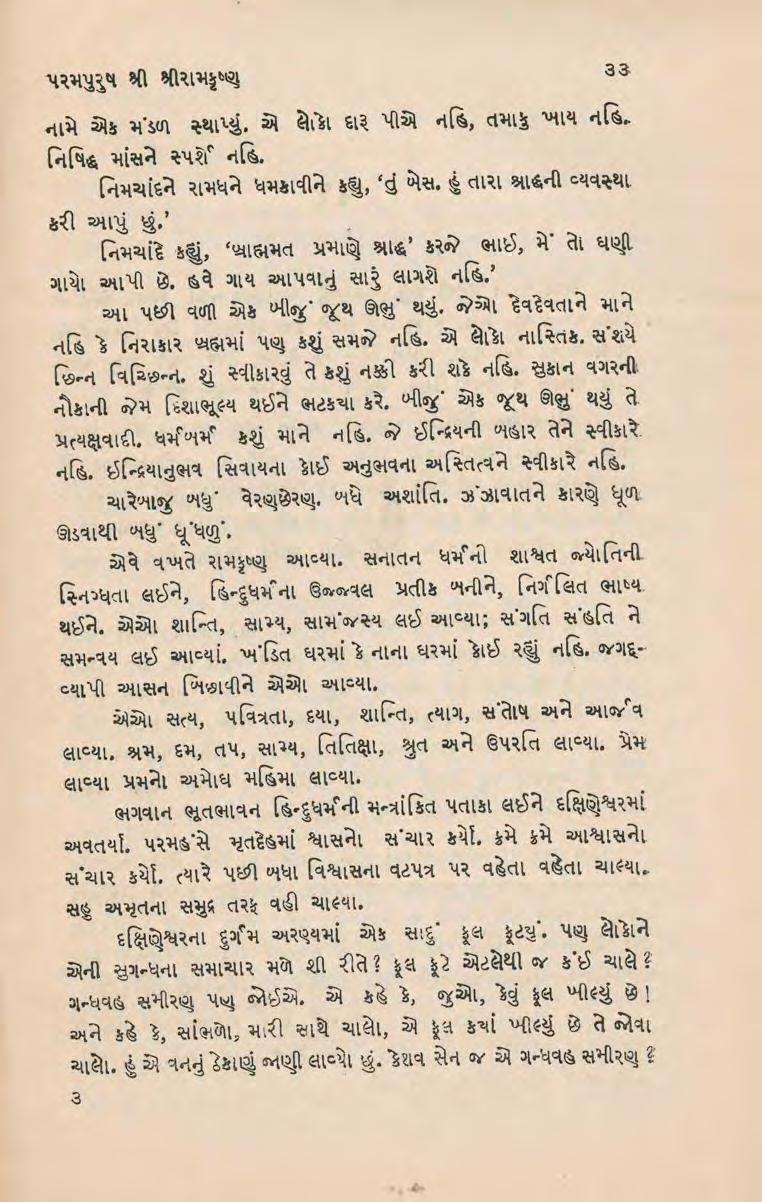 પરમપુરુષ શ્રી શ્રીરામકૃષ્ણ
૩૩
નામે એક મંડળ સ્થાપ્યું. એ લોકો દારૂ પીએ નહિ, તમાકુ ખાય નહિ.
નિષિદ્ધ માંસને સ્પર્શે નહિ.
નિમચાંદને રામધને ધમકાવીને કહ્યુ, ‘તું બેસ. હું તારા શ્રાદ્ધની વ્યવસ્થા
કરી આપું છું.’
નિમચાંદે કહ્યું, ‘બ્રાહ્મમત પ્રમાણે શ્રાદ્ધ’ કરજે ભાઈ, મેં તો ઘણી
ગાયો આપી છે. હવે ગાય આપવાનું સારું લાગશે નહિ.’
આ પછી વળી એક બીજું જૂથ ઊભું થયું. જેઓ દેવદેવતાને માને
નહિ કે નિરાકાર બ્રહ્મમાં પણ કશું સમજે નહિ. એ લોકો નાસ્તિક. સંશયે
છિન્ન વિચ્છિન્ન. શું સ્વીકારવું તે કશું નક્કી કરી શકે નહિ. સુકાન વગરની
નૌકાની જેમ દિશાભૂલ્ય થઈને ભટકયા કરે. બીજું એક જૂથ ઊભું થયું તે
પ્રત્યક્ષવાદી. ધર્મબર્મ કશું માને નહિ. જે ઈન્દ્રિયની બહાર તેને સ્વીકારે
નહિ. ઇન્દ્રિયાનુભવ સિવાયના કોઈ અનુભવના અસ્તિત્વને સ્વીકારે નહિ.
ચારેબાજુ બધું વેરણછેરણ. બધે અશાંતિ. ઝંઝાવાતને કારણે ધૂળ
ઊડવાથી બધું ધૂંધળું.
એવે વખતે રામકૃષ્ણ આવ્યા. સનાતન ધર્મની શાશ્વત જ્યોતિની
સ્નિગ્ધતા લઈને, હિન્દુધર્મના ઉજ્જવલ પ્રતીક બનીને, નિર્ગલિત ભાષ્ય
થઈને. એઓ શાન્તિ, સામ્ય, સામંજસ્ય લઈ આવ્યા; સંગતિ સંહતિ ને
સમન્વય લઈ આવ્યાં. ખંડિત ઘરમાં કે નાના ઘરમાં કોઈ રહ્યું નહિ. જગદ્-
વ્યાપી આસન બિછાવીને એઓ આવ્યા.
એઓ સત્ય, પવિત્રતા, દયા, શાન્તિ, ત્યાગ, સંતોષ અને આર્જવ
લાવ્યા. શ્રમ, દમ, તપ, સામ્ય, તિતિક્ષા, શ્રુત અને ઉપરતિ લાવ્યા. પ્રેમ
લાવ્યા પ્રમનો અમોઘ મહિમા લાવ્યા.
ભગવાન ભૂતભાવન હિન્દુધર્મની મન્ત્રાંકિત પતાકા લઈને દક્ષિણેશ્વરમાં
અવતર્યા. પરમહંસે મૃતદેહમાં શ્વાસનો સંચાર કર્યો. ક્રમે ક્રમે આશ્વાસનો
સંચાર કર્યો. ત્યારે પછી બધા વિશ્વાસના વટપત્ર પર વહેતા વહેતા ચાલ્યા.
સહુ અમૃતના સમુદ્ર તરફ વહી ચાલ્યા.
દક્ષિણેશ્વરના દુર્ગમ અરણ્યમાં એક સાદું ફૂલ ફૂટયું. પણ લોકોને
એની સુગન્ધના સમાચાર મળે શી રીતે? ફૂલ ફૂટે એટલેથી જ કંઈ ચાલે?
ગન્ધવહ સમીરણ પણ જોઈએ. એ કહે કે, જુઓ, કેવું ફૂલ ખીલ્યું છે!
અને કહે કે, સાંભળો, મારી સાથે ચાલો, એ ફૂલ કયાં ખીલ્યું છે તે જોવા
ચાલો. હું એ વનનું ઠેકાણું જાણી લાવ્યો છું. કેશવ સેન જ એ ગન્ધવહ સમીરણ?
૩